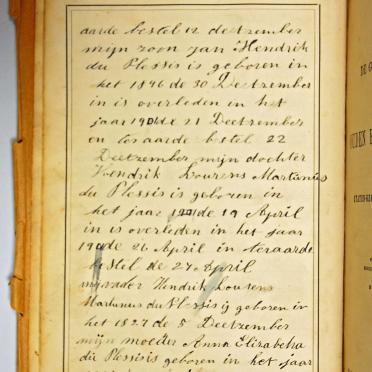 aarde bestel 12 dectzember
mijn zoon Jan Hendrik
du Plessis is geboren in
het 1896 de 30 Dectzember
in is overleden in het
jaar de 21 Deetzember
en ter aarde bestel 22
Deetzember mijn dochter
Hendrik Lourens Martinus
du Plessis is geboren in
het jaar de 19 April
in is overleden in het jaar
de 26 April in teraarde
bestel de 27 April
mijvader Hendrik Lourens
Martunus du Plessis geboren in
het 1827 de 5 Deetzember
mijn moeder Anna Elizabetha
du Plessis geboren in het jaar